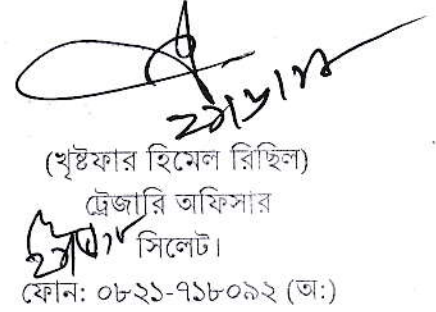 (খৃষ্টফার হিমেল রিছিল)
ট্রেজারি অফিসার
সিলেট।
ফোন: ০৮২১-৭১৮০৯২ (অ:)